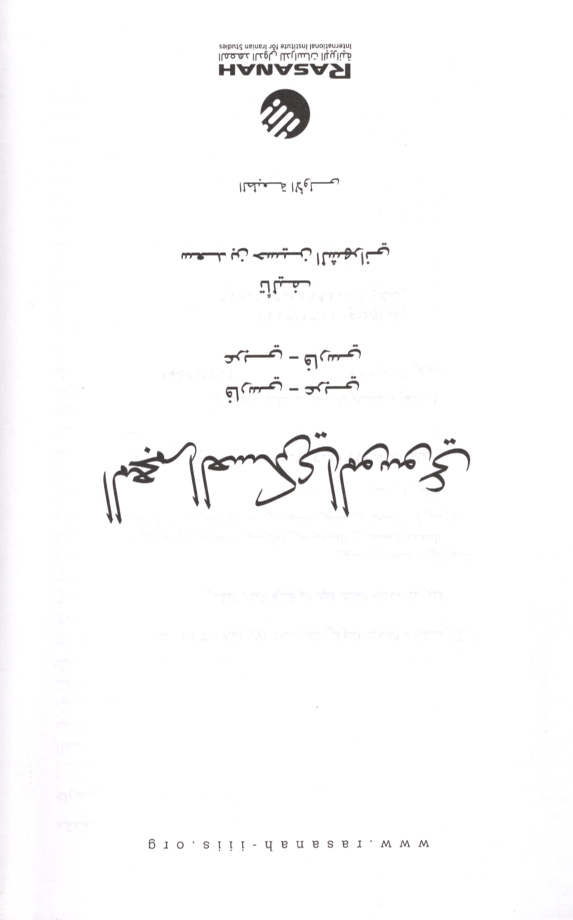 www.rasanah-iiis.org
المعجم العسكري الموسوعي
فارسي – عربي
عربي – فارسي
تأليف
سعد بن حسين الشهراني
الطبعة الأولى
RASANAH
المعهد الدولي للدراسات الإيرانية
International Institute for Iranian Studies